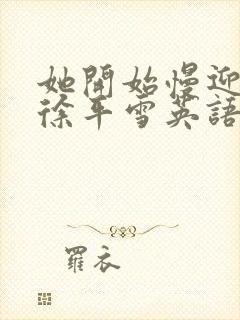 她開始慢迎
徐平雪英語
羅衣